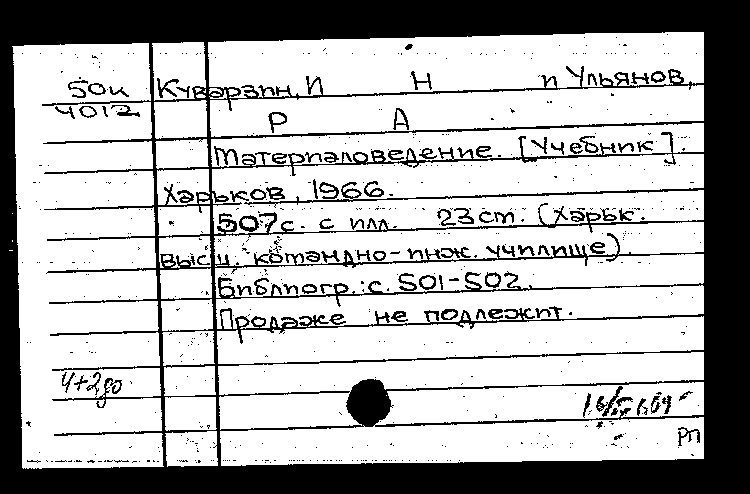 50и Куварзин, И Н и Ульянов,
4012
Р А
Материаловедение. [Учебник].
Харьков, 1966.
507с. с илл. 23см. (Харьк.
высш. командно-инж. училище).
Библиогр.: с. 501-502.
Продаже не подлежит.
4+2до
РП